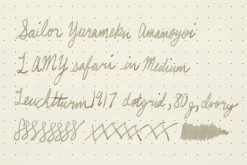 Sailor Yurameku Amamoyoi
LAMY safari in Medium
Leuchtturm 1917 dotgrid, 80g, Ivory